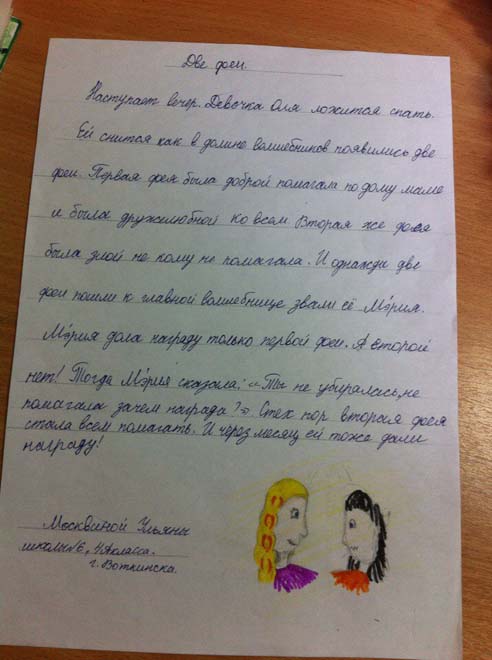 Две феи.
Наступает вечер. Девочка Оля ложится спать.
Ей снится как в долине волшебников появились две
феи. Первая фея была доброй помагала по дому маме
и была дружилюбной ко всем Вторая же фея
была злой не кому не помагала. И однажды две
феи пошли к главной волшебнице звали её Мэрия.
Мэрия дола награду только первой феи. А второй
нет! Тогда Мэрия сказала: «Ты не убиралась, не
помагала зачем награда?» Стех пор вторая фея
стала всем помагать. И через месяц ей тоже дали
награду!
Москвиной Ульяны
школы №6, 4А класса.
г. Воткинска.